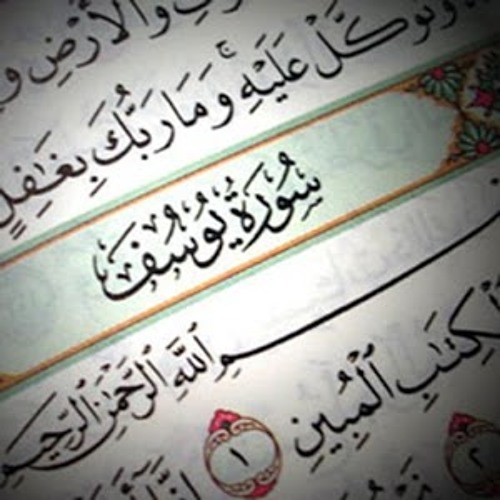 وَالْأَرْضِ
وَتَوَكَّلْ عَلَيْهِ ۚ وَمَا رَبُّكَ بِغَٰفِلٍ
سُورَةُ يُوسُفَ
بِسْمِ ٱللَّهِ ٱلرَّحْمَٰنِ ٱلرَّحِيمِ
ٱلْكِتَٰبِ ٱلْمُبِينِ ١
إِنَّآ ٢